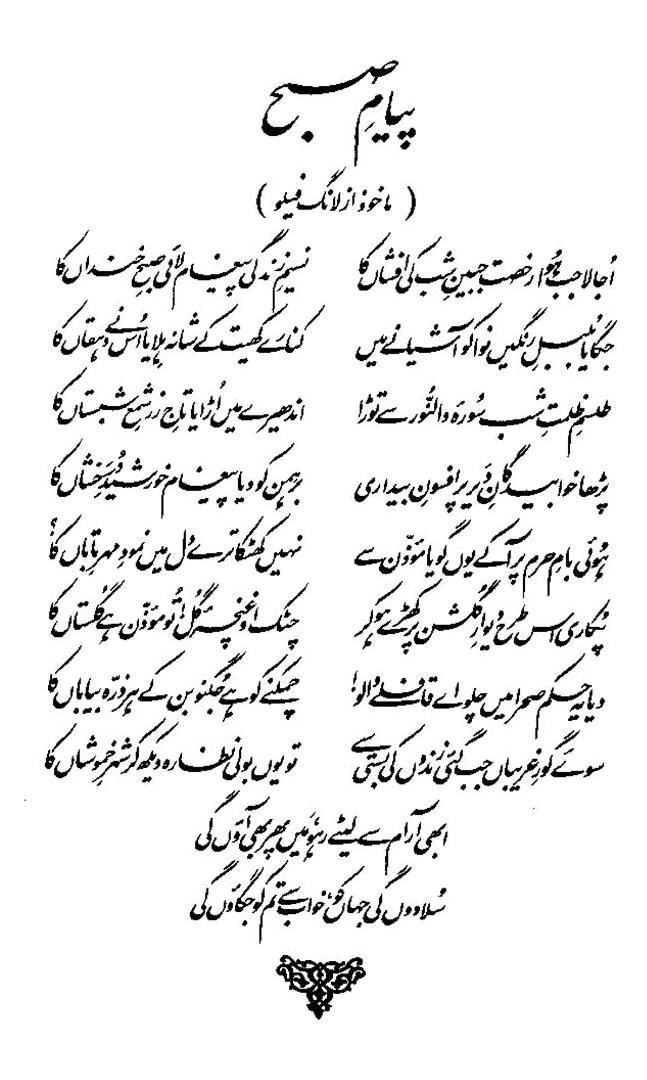 پیامِ صبح
(ماخوذ از لانگ فیلو)
اُجالا جب ہُوا رخصت جبینِ شب کی افشاں کا نسیمِ زندگی پیغام لائی صبحِ خنداں کا
جگایا بُلبلِ رنگیں نوا کو آشیانے میں کنارے کھیت کے شانہ ہِلایا اُس نے دہقاں کا
طلسمِ ظلمتِ شب سُورۂ والنُّور سے توڑا اندھیرے میں اُڑایا تاجِ زر شمعِ شبستاں کا
پڑھا خوابیدگانِ دَیر پر افسونِ بیداری برہمن کو دیا پیغام خورشیدِ دُرَخشاں کا
ہُوئی بامِ حرم پر آ کے یوں گویا مؤذّن سے نہیں کھٹکا ترے دل میں نمودِ مہرِ تاباں کا؟
پُکاری اس طرح دیوارِ گلشن پر کھڑے ہو کر چٹک او غنچۂ گُل! تُو مؤذّن ہے گُلستاں کا
دیا یہ حکم صحرا میں چلو اے قافلے والو! چمکنے کو ہے جُگنو بن کے ہر ذرّہ بیاباں کا
سوئے گورِ غریباں جب گئی زِندوں کی بستی سے تو یوں بولی نظارہ دیکھ کر شہرِ خموشاں کا
ابھی آرام سے لیٹے رہو، مَیں پھر بھی آؤں گی
سُلا دوں گی جہاں کو، خواب سے تم کو جگاؤں گی